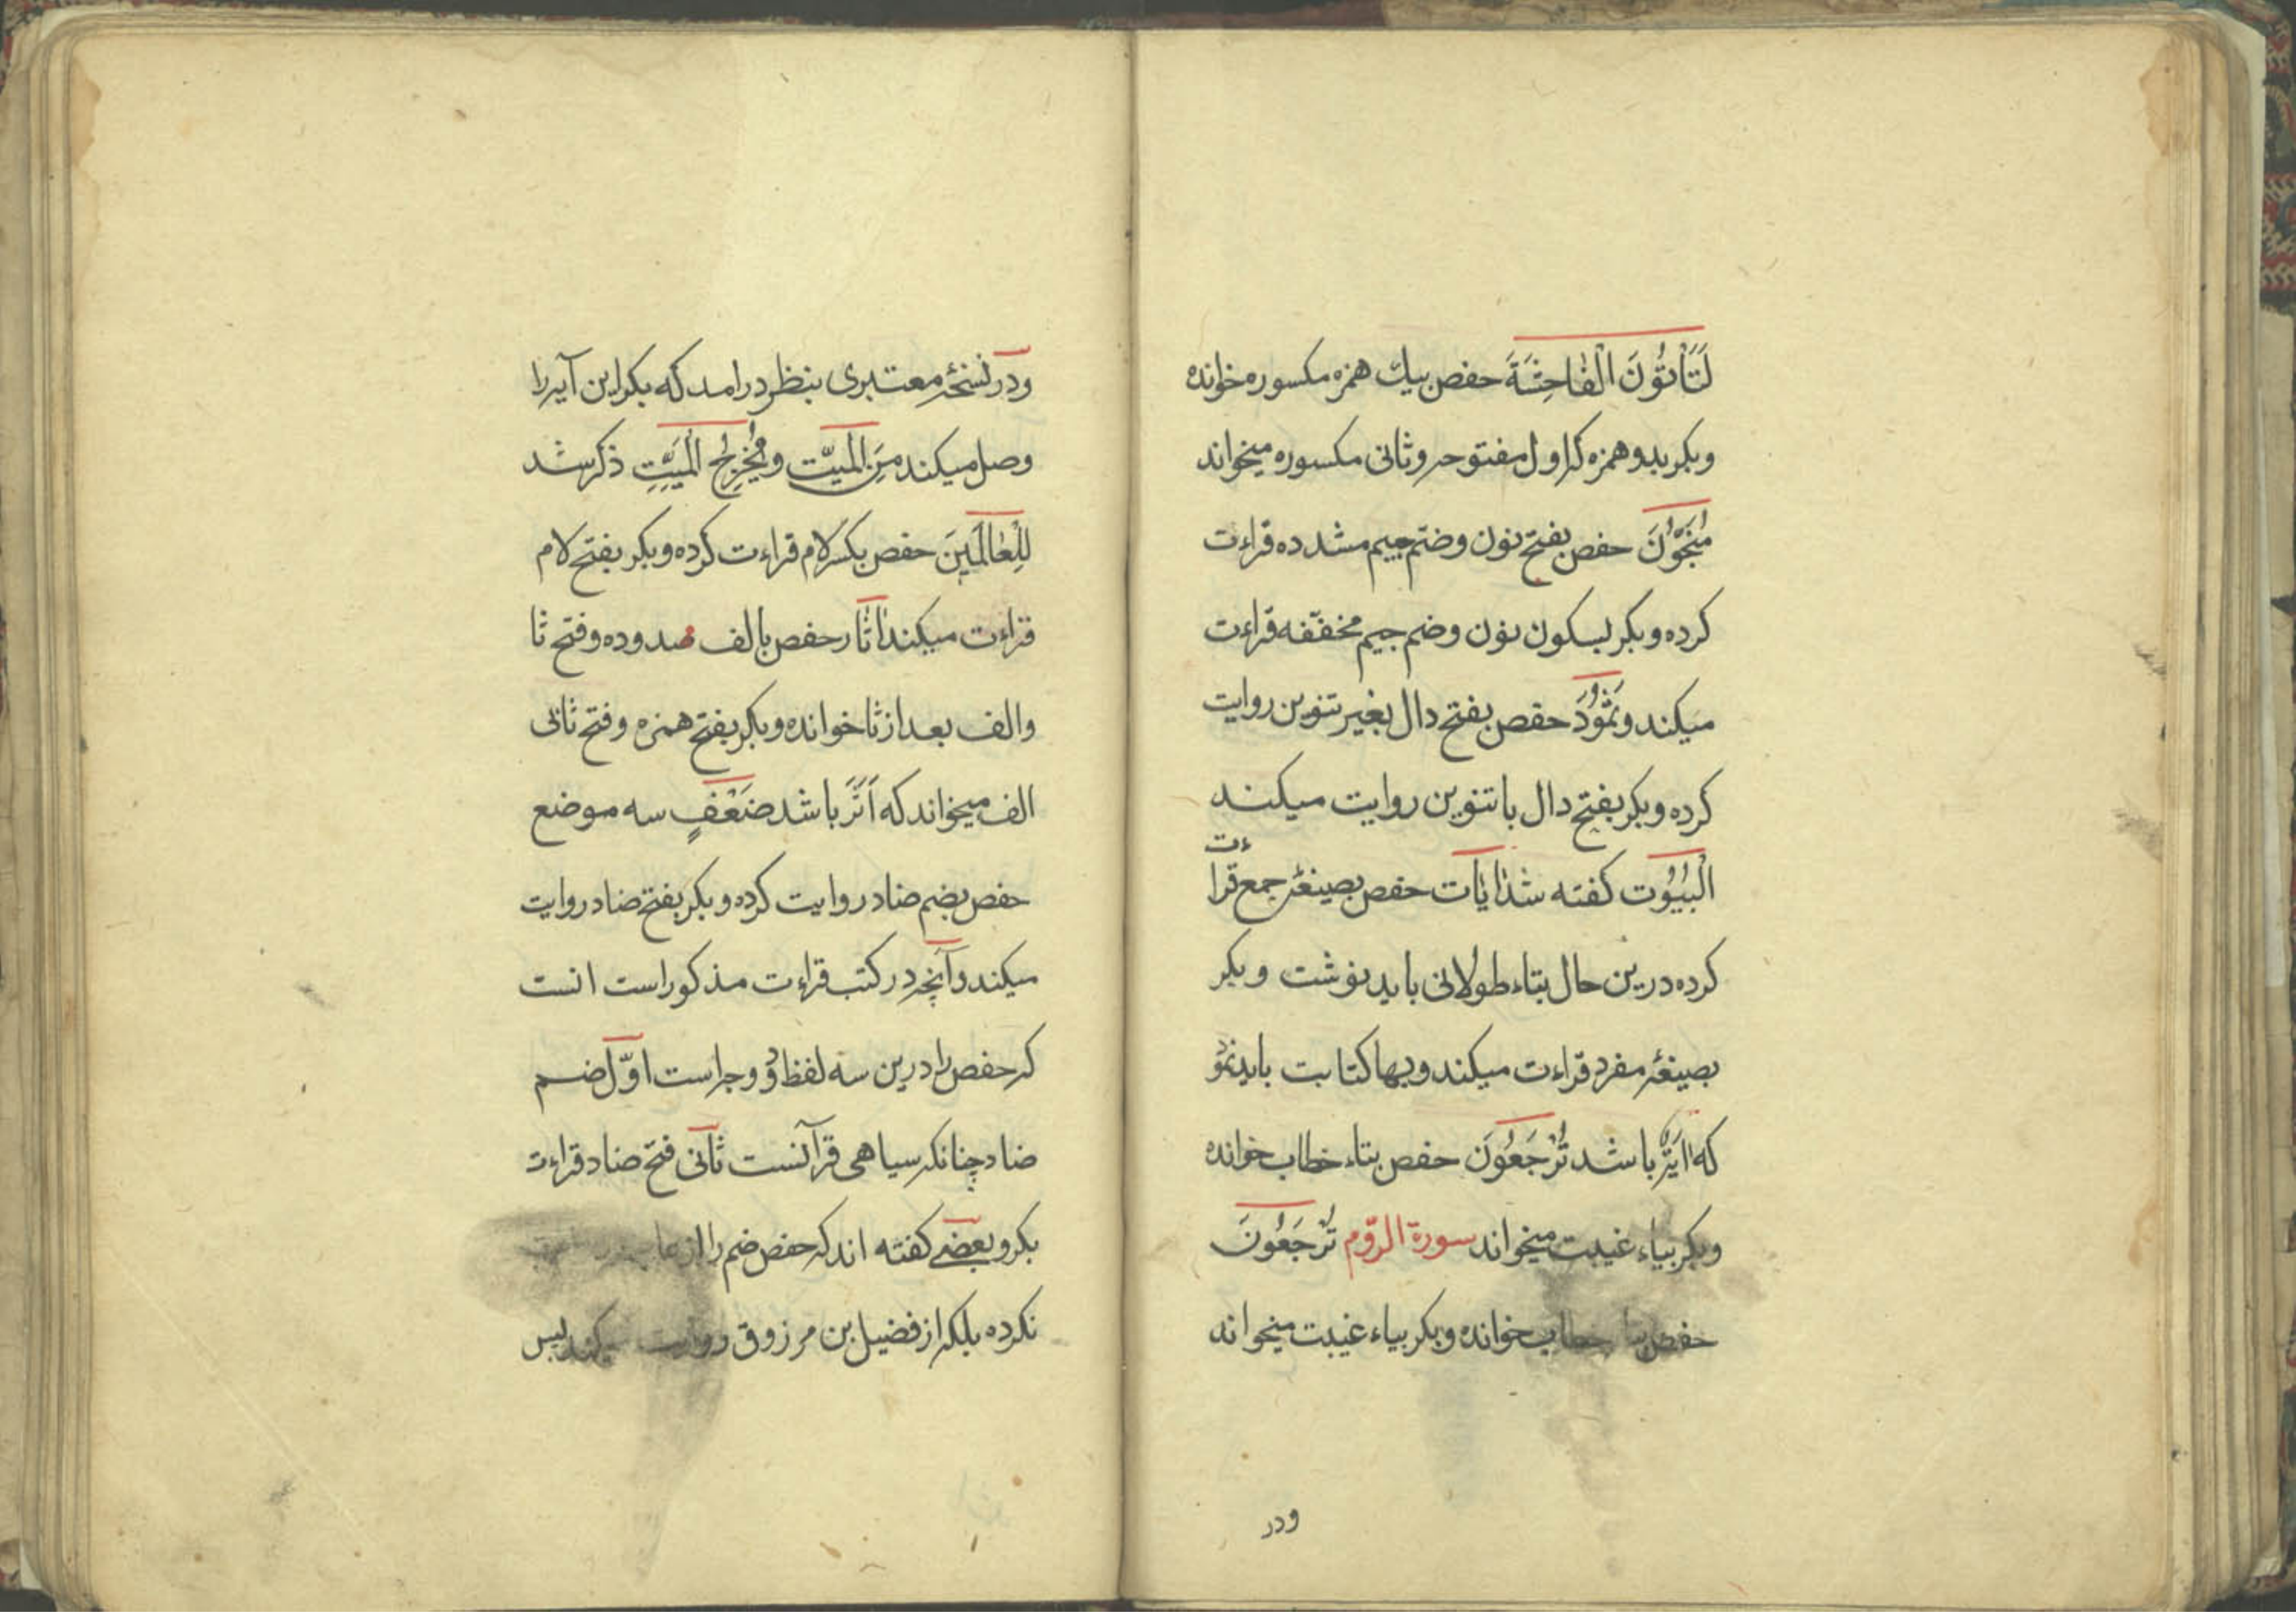 لَتَأْتُونَ الْفَاحِشَةَ حفص بیك همزه مکسوره خوانده
وبکر بدو همزه که اول مفتوحه وثانی مکسوره میخواند
مُنَجُّوْنَ حفص بفتح نون وضم جیم مشدده قراءت
کرده وبکر بسکون نون وضم جیم مخففه قراءت
میکند وثَمُوْدَ حفص بفتح دال بغیر تنوین روایت
کرده وبکر بفتح دال با تنوین روایت میکند
الْبُیُوْت کفته شد اٰیٰات حفص بصیغهٔ جمع قراءت
کرده درین حال بتاء طولانی باید نوشت وبکر
بصیغهٔ مفرد قراءت میکند وبها کتابت باید نمود
که اٰیَة باشد تُرْجَعُوْنَ حفص بتاء خطاب خوانده
وبکر بیاء غیبت میخواند سورة الرّوم تُرْجَعُوْنَ
حفص بتا خطاب خوانده وبکر بیاء غیبت میخواند
ودر
ودر نسخهٔ معتبری بنظر درامد که بکر این آیه را
وصل میکند مِنَ الْمَیِّت ومُخْرِجُ الْمَیِّتِ ذکر شد
لِلْعَالَمِینَ حفص بکسر لام قراءت کرده وبکر بفتح لام
قراءت میکند اٰثٰار حفص بالف ممدوده وفتح ثا
والف بعد از ثا خوانده وبکر بفتح همزه وفتح ثانی
الف میخواند که اَثَر باشد ضَعْفٍ سه موضع
حفص بضم ضاد روایت کرده وبکر بفتح ضاد روایت
میکند وآنچه در کتب قراءت مذکور است انست
که حفص را درین سه لفظ دو وجه است اوّل ضم
ضاد چنانکه سیاهی قرآنست ثانی فتح ضاد قراءت
بکر وبعضی کفته اند که حفص ضم را از
نکرده بلکه از فضیل بن مرزوق روایت میکند پس